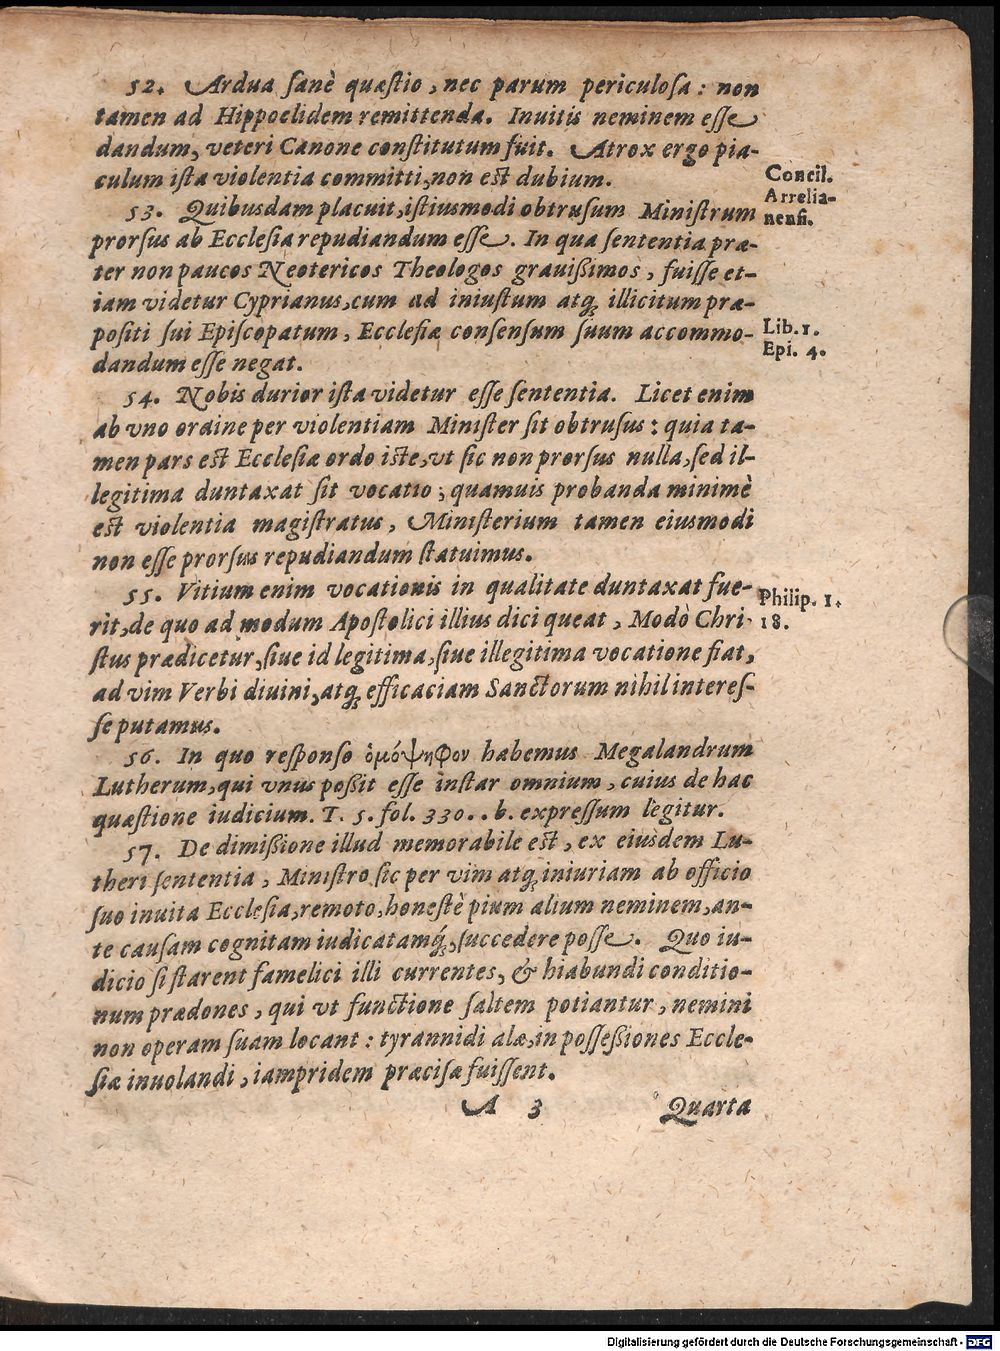 52. Ardua ſanè quæſtio, nec parum periculoſa: non
tamen ad Hippoclidem remittenda. Inuitis neminem eſſe
dandum, veteri Canone conſtitutum fuit. Atrox ergo pia-
culum iſta violentia committi, non eſt dubium.
Concil.
Arrelia-
nenſi.
53. Quibusdam placuit, iſtiusmodi obtruſum Miniſtrum
prorſus ab Eccleſia repudiandum eſſe. In qua ſententia præ-
ter non paucos Neotericos Theologos grauißimos, fuiſſe et-
iam videtur Cyprianus, cum ad iniuſtum atq; illicitum præ-
poſiti ſui Epiſcopatum, Eccleſiæ conſenſum ſuum accommo-
dandum eſſe negat.
Lib. 1.
Epi. 4.
54. Nobis durior iſta videtur eſſe ſententia. Licet enim
ab vno ordine per violentiam Miniſter ſit obtruſus: quia ta-
men pars eſt Eccleſiæ ordo iſte, vt ſic non prorſus nulla, ſed il-
legitima duntaxat ſit vocatio; quamuis probanda minimè
eſt violentia magiſtratus, Miniſterium tamen eiusmodi
non eſſe prorſus repudiandum ſtatuimus.
55. Vitium enim vocationis in qualitate duntaxat fue-
rit, de quo ad modum Apoſtolici illius dici queat, Modò Chri-
ſtus prædicetur, ſiue id legitima, ſiue illegitima vocatione fiat,
ad vim Verbi diuini, atq; efficaciam Sanctorum nihil intereſ-
ſe putamus.
Philip. 1.
18.
56. In quo reſponſo ὁμόψηφον habemus Megalandrum
Lutherum, qui vnus poßit eſſe inſtar omnium, cuius de hac
quæſtione iudicium. T. 5. fol. 330. . b. expreſſum legitur.
57. De dimißione illud memorabile eſt, ex eiusdem Lu-
theri ſententia, Miniſtro ſic per vim atq; iniuriam ab officio
ſuo inuita Eccleſia, remoto, honeſtè pium alium neminem, an-
te cauſam cognitam iudicatamq́;, ſuccedere poſſe. Quo iu-
dicio ſi ſtarent famelici illi currentes, & hiabundi conditio-
num prædones, qui vt functione ſaltem potiantur, nemini
non operam ſuam locant: tyrannidi alæ, in poſſeßiones Eccle-
ſiæ inuolandi, iampridem præciſæ fuiſſent.
A 3 Quarta
Digitalisierung gefördert durch die Deutsche Forschungsgemeinschaft - DFG